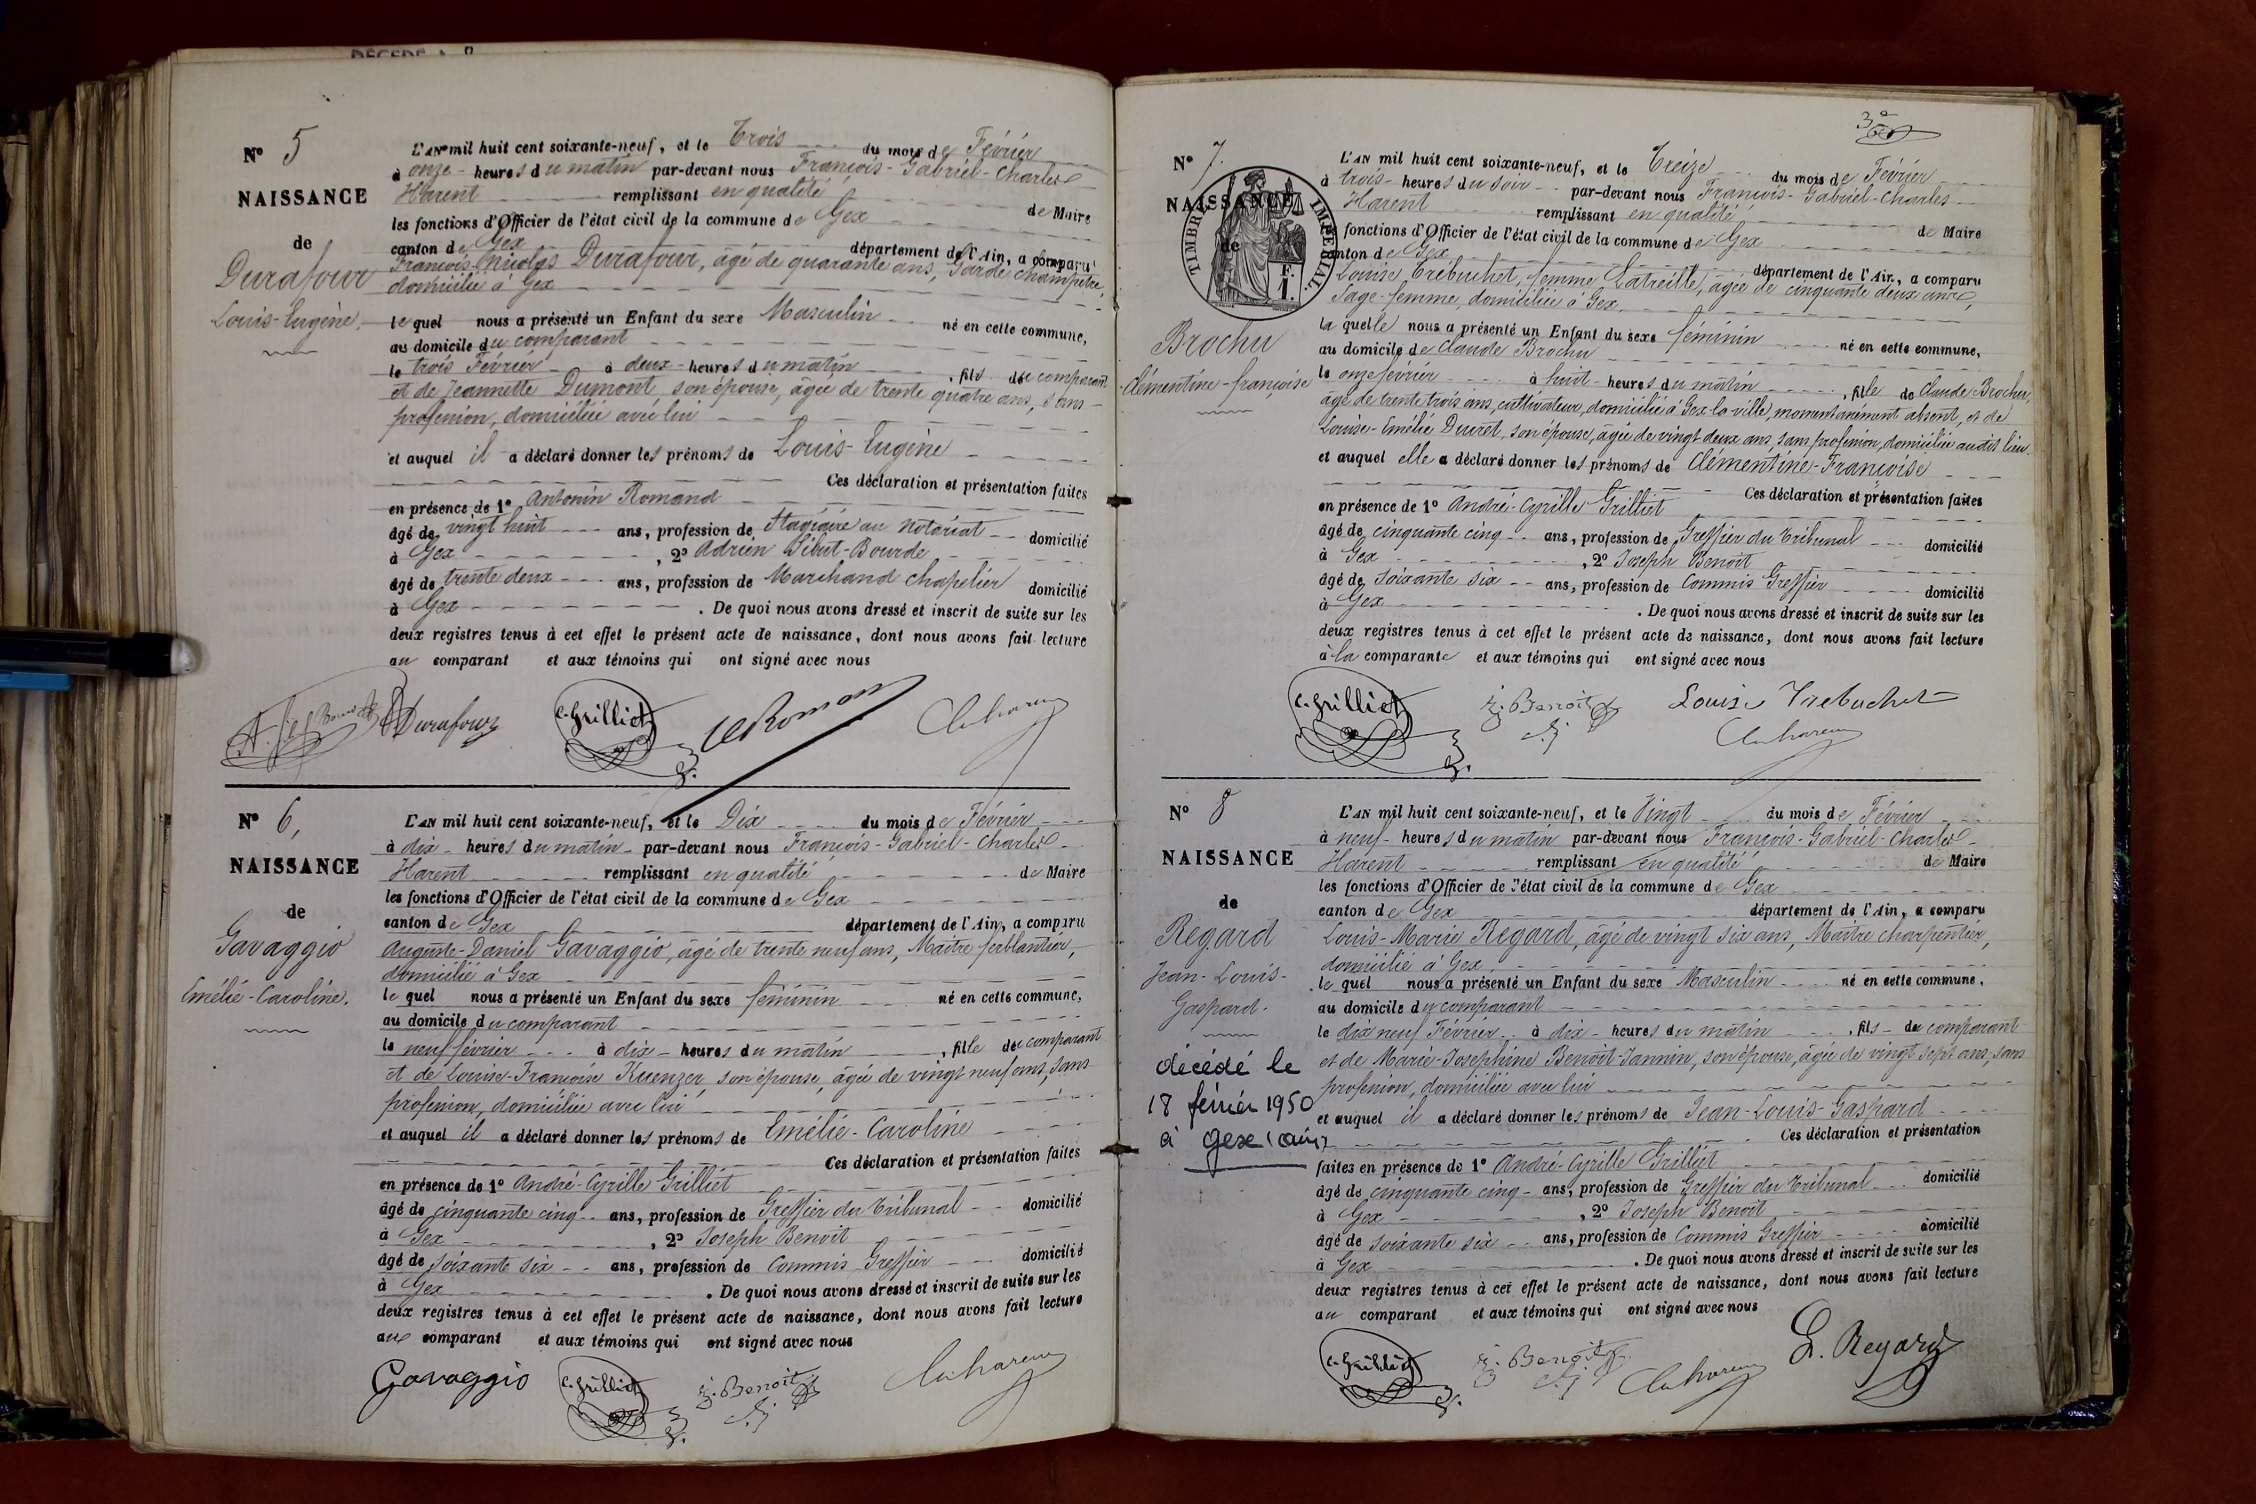 N° 5
NAISSANCE
de
Durafour
Louis-Eugène.
L'AN mil huit cent soixante-neuf, et le Trois du mois de Février
à onze heures du matin par-devant nous François-Gabriel-Charles
Harent remplissant en qualité de Maire
les fonctions d'Officier de l'état civil de la commune de Gex
canton de Gex département de l'Ain, a comparu
François-Nicolas Durafour, âgé de quarante ans, Garde champêtre,
domicilié à Gex
le quel nous a présenté un Enfant du sexe Masculin né en cette commune,
au domicile du comparant
le trois Février à deux heures du matin, fils du comparant
et de Jeannette Dumont, son épouse, âgée de trente quatre ans, sans
profession, domiciliée avec lui
et auquel il a déclaré donner les prénoms de Louis-Eugène
Ces déclaration et présentation faites
en présence de 1° Antonin Romand
âgé de vingt huit ans, profession de Stagiaire au notariat domicilié
à Gex, 2° Adrien Sibut-Bourde
âgé de trente deux ans, profession de Marchand chapelier domicilié
à Gex. De quoi nous avons dressé et inscrit de suite sur les
deux registres tenus à cet effet le présent acte de naissance, dont nous avons fait lecture
au comparant et aux témoins qui ont signé avec nous
Durafour C. Grilliet
N° 6,
NAISSANCE
de
Gavaggio
Emélie-Caroline.
L'AN mil huit cent soixante-neuf, et le Dix du mois de Février
à dix heures du matin par-devant nous François-Gabriel-Charles
Harent remplissant en qualité de Maire
les fonctions d'Officier de l'état civil de la commune de Gex
canton de Gex département de l'Ain, a comparu
Auguste-Daniel Gavaggio, âgé de trente neuf ans, Maître ferblantier,
domicilié à Gex
le quel nous a présenté un Enfant du sexe féminin né en cette commune,
au domicile du comparant
le neuf février à dix heures du matin, fille du comparant
et de Louise-Françoise Kuenzer, son épouse, âgée de vingt neuf ans, sans
profession, domiciliée avec lui
et auquel il a déclaré donner les prénoms de Emélie-Caroline
Ces déclaration et présentation faites
en présence de 1° André-Cyrille Grilliet
âgé de cinquante cinq ans, profession de Greffier du Tribunal domicilié
à Gex, 2° Joseph Benoît
âgé de soixante six ans, profession de Commis Greffier domicilié
à Gex. De quoi nous avons dressé et inscrit de suite sur les
deux registres tenus à cet effet le présent acte de naissance, dont nous avons fait lecture
au comparant et aux témoins qui ont signé avec nous
Gavaggio C. Grilliet J. Benoit
N° 7.
NAISSANCE
de
TIMBRE IMPÉRIAL.
Brochu
Clémentine-françoise
L'AN mil huit cent soixante-neuf, et le Treize du mois de Février
à trois heures du soir par-devant nous François-Gabriel-Charles
Harent remplissant en qualité de Maire
fonctions d'Officier de l'état civil de la commune de Gex
canton de Gex département de l'Ain, a comparu
Louise Trebuchet, femme Latreille, âgée de cinquante deux ans,
Sage-femme, domiciliée à Gex
la quelle nous a présenté un Enfant du sexe féminin né en cette commune,
au domicile de Claude Brochu
le onze février à huit heures du matin, fille de Claude Brochu,
âgé de trente trois ans, cultivateur, domicilié à Gex-la-ville, momentanément absent, et de
Louise-Emélie Duret, son épouse, âgée de vingt deux ans, sans profession, domiciliée audit lieu
et auquel elle a déclaré donner les prénoms de Clémentine-Françoise
Ces déclaration et présentation faites
en présence de 1° André-Cyrille Grilliet
âgé de cinquante cinq ans, profession de Greffier du Tribunal domicilié
à Gex, 2° Joseph Benoît
âgé de soixante six ans, profession de Commis Greffier domicilié
à Gex. De quoi nous avons dressé et inscrit de suite sur les
deux registres tenus à cet effet le présent acte de naissance, dont nous avons fait lecture
à la comparante et aux témoins qui ont signé avec nous
C. Grilliet J. Benoit Louise Trebuchet
N° 8
NAISSANCE
de
Regard
Jean-Louis-
Gaspard.
décédé le
18 février 1950
à Gex (Ain)
L'AN mil huit cent soixante-neuf, et le Vingt du mois de Février
à neuf heures du matin par-devant nous François-Gabriel-Charles
Harent remplissant en qualité de Maire
les fonctions d'Officier de l'état civil de la commune de Gex
canton de Gex département de l'Ain, a comparu
Louis-Marie Regard, âgé de vingt six ans, Maître charpentier,
domicilié à Gex
le quel nous a présenté un Enfant du sexe Masculin né en cette commune,
au domicile du comparant
le dix neuf Février à dix heures du matin, fils du comparant
et de Marie-Josephine Benoit-Jannin, son épouse, âgée de vingt sept ans, sans
profession, domiciliée avec lui
et auquel il a déclaré donner les prénoms de Jean-Louis-Gaspard
Ces déclaration et présentation
faites en présence de 1° André-Cyrille Grilliet
âgé de cinquante cinq ans, profession de Greffier du Tribunal domicilié
à Gex, 2° Joseph Benoît
âgé de soixante six ans, profession de Commis Greffier domicilié
à Gex. De quoi nous avons dressé et inscrit de suite sur les
deux registres tenus à cet effet le présent acte de naissance, dont nous avons fait lecture
au comparant et aux témoins qui ont signé avec nous
C. Grilliet J. Benoit L. Regard